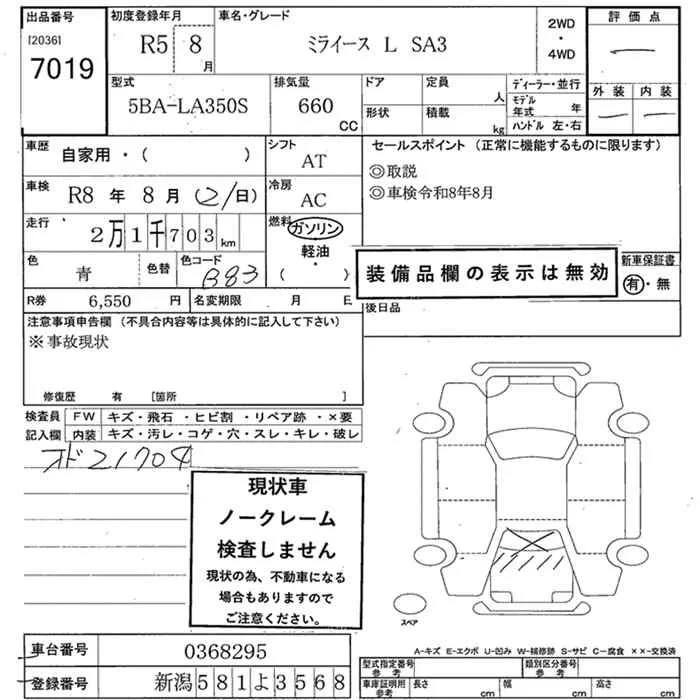 出品番号
[2036]
7019
初度登録年月
R5 8
月
車名・グレード
ミライース L SA3
2WD
・
4WD
評価点
—
外装 内装
— —
型式
5BA-LA350S
排気量
660
CC
ドア
形状
定員
人
積載
kg
ディーラー・並行
モデル
年式 年
ハンドル 左・右
車歴
自家用・( )
シフト
AT
セールスポイント (正常に機能するものに限ります)
◎取説
◎車検令和8年8月
車検
R8 年 8 月 (2/日)
冷房
AC
走行
2万1千703km
燃料
ガソリン
軽油・
( )
色
青
色替
色コード
B83
装備品欄の表示は無効
新車保証書
有・無
R券 6,550 円
名変期限 月 日
後日品
注意事項申告欄 (不具合内容等は具体的に記入して下さい)
※事故現状
修復歴 有 [箇所 ]
検査員
記入欄
FW キズ・飛石・ヒビ割・リペア跡・×要
内装 キズ・汚レ・コゲ・穴・スレ・キレ・破レ
オド21704
現状車
ノークレーム
検査しません
現状の為、不動車になる
場合もありますので
ご注意ください。
スペア
A-キズ E-エクボ U-凹み W-補修跡 S-サビ C-腐食 ××-交換済
車台番号 0368295
登録番号 新潟581よ3568
型式指定番号
参考
類別区分番号
参考
車庫証明用
参考
長さ cm 幅 cm 高さ cm